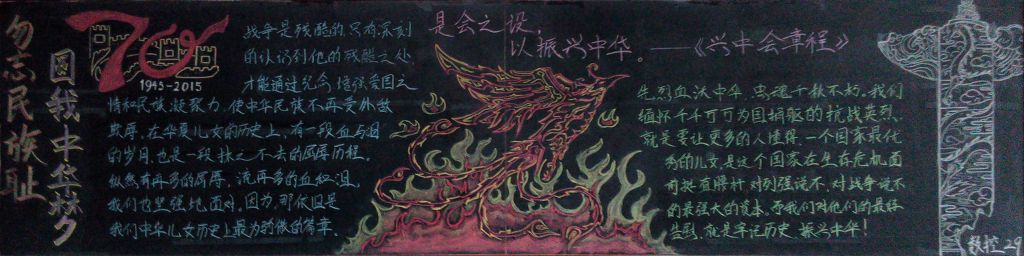 勿忘民族耻
圆我中华梦
70
1945-2015
战争是残酷的,只有深刻
的认识到他的残酷之处
才能通过纪念,增强爱国之
情和民族凝聚力,使中华民族不再受外敌
欺辱。在华夏儿女的历史上,有一段血与泪
的岁月,也是一段抹之不去的屈辱历程。
纵然有再多的屈辱,流再多的血和泪,
我们也坚强地面对,因为,那依旧是
我们中华儿女历史上最为骄傲的篇章.
是会之设,
以振兴中华。——《兴中会章程》
先烈血沃中华,忠魂千秋不朽。我们
缅怀千千万万为国捐躯的抗战英烈,
就是要让更多的人懂得,一个国家最优
秀的儿女,是这个国家在生存危机面
前挺直腰杆,对列强说不,对战争说不
的最强大的资本。而我们对他们的最好
告慰,就是牢记历史,振兴中华!
数控.29